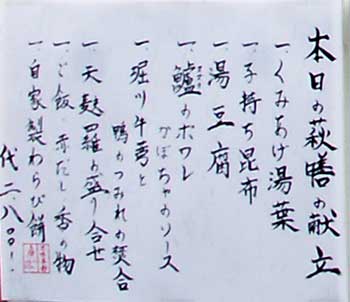 本日の萩膳の献立
一、くみあげ湯葉
一、子持ち昆布
一、湯豆腐
一、鱸のポワレ
かぼちゃのソース
一、堀川牛蒡と
鴨のつみれの焚合
一、天麩羅の盛り合せ
一、ご飯、赤だし、香の物
一、自家製わらび餅
代 二、八〇〇、